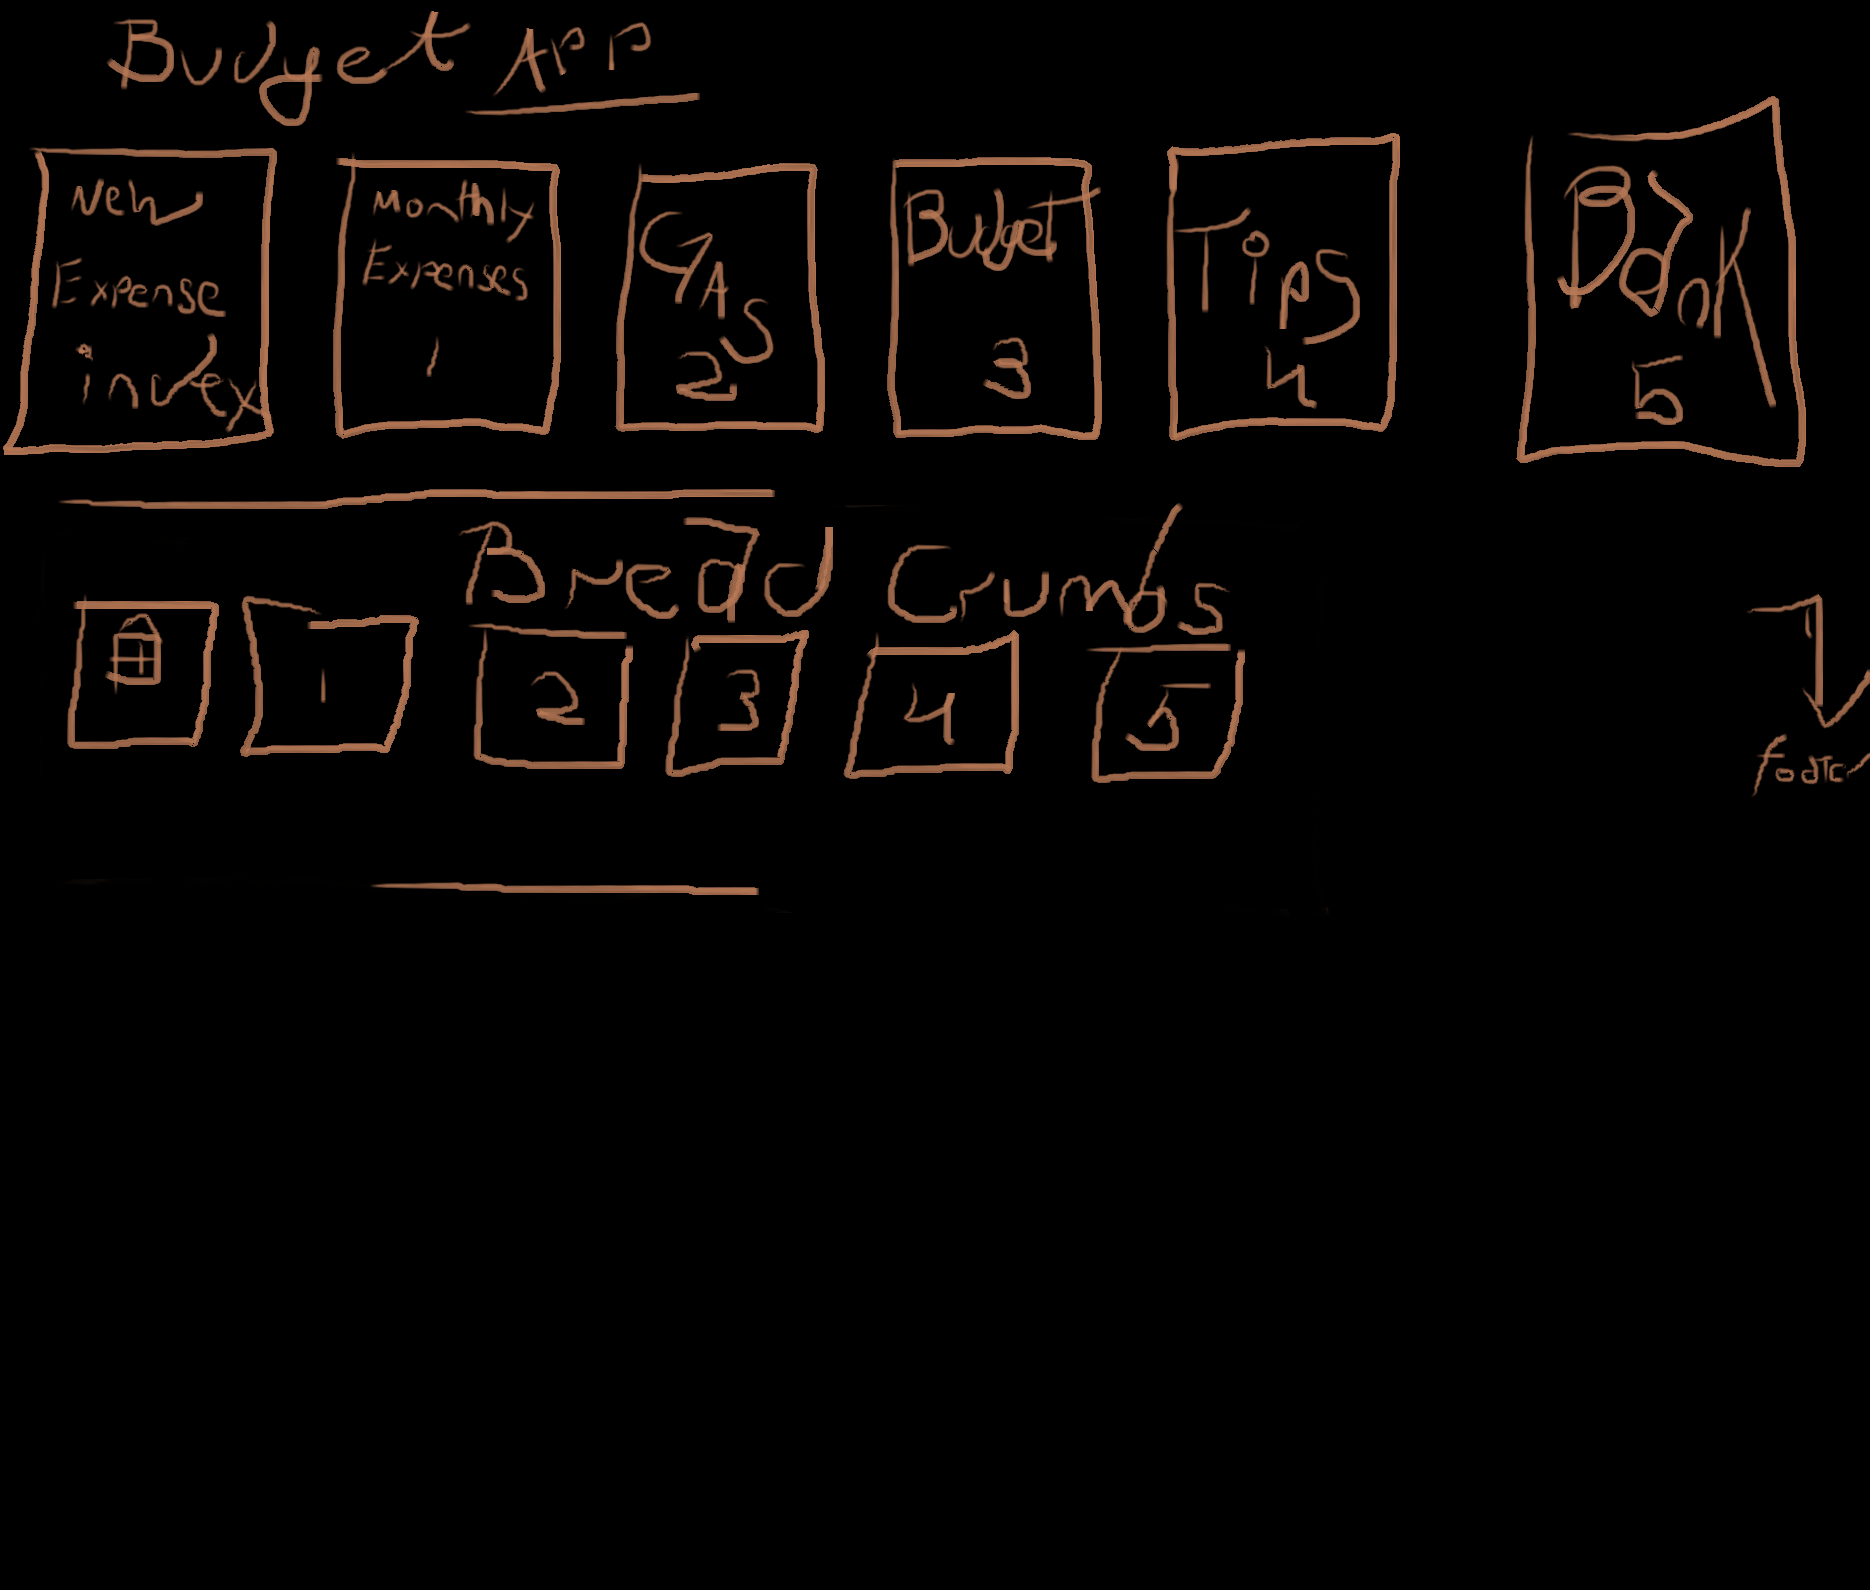 Budget APP
New
Expense
index
Monthly
Expenses
1
GAS
2
Budget
3
Tips
4
Bank
5
Bread Crumbs
1
2
3
4
5
footer